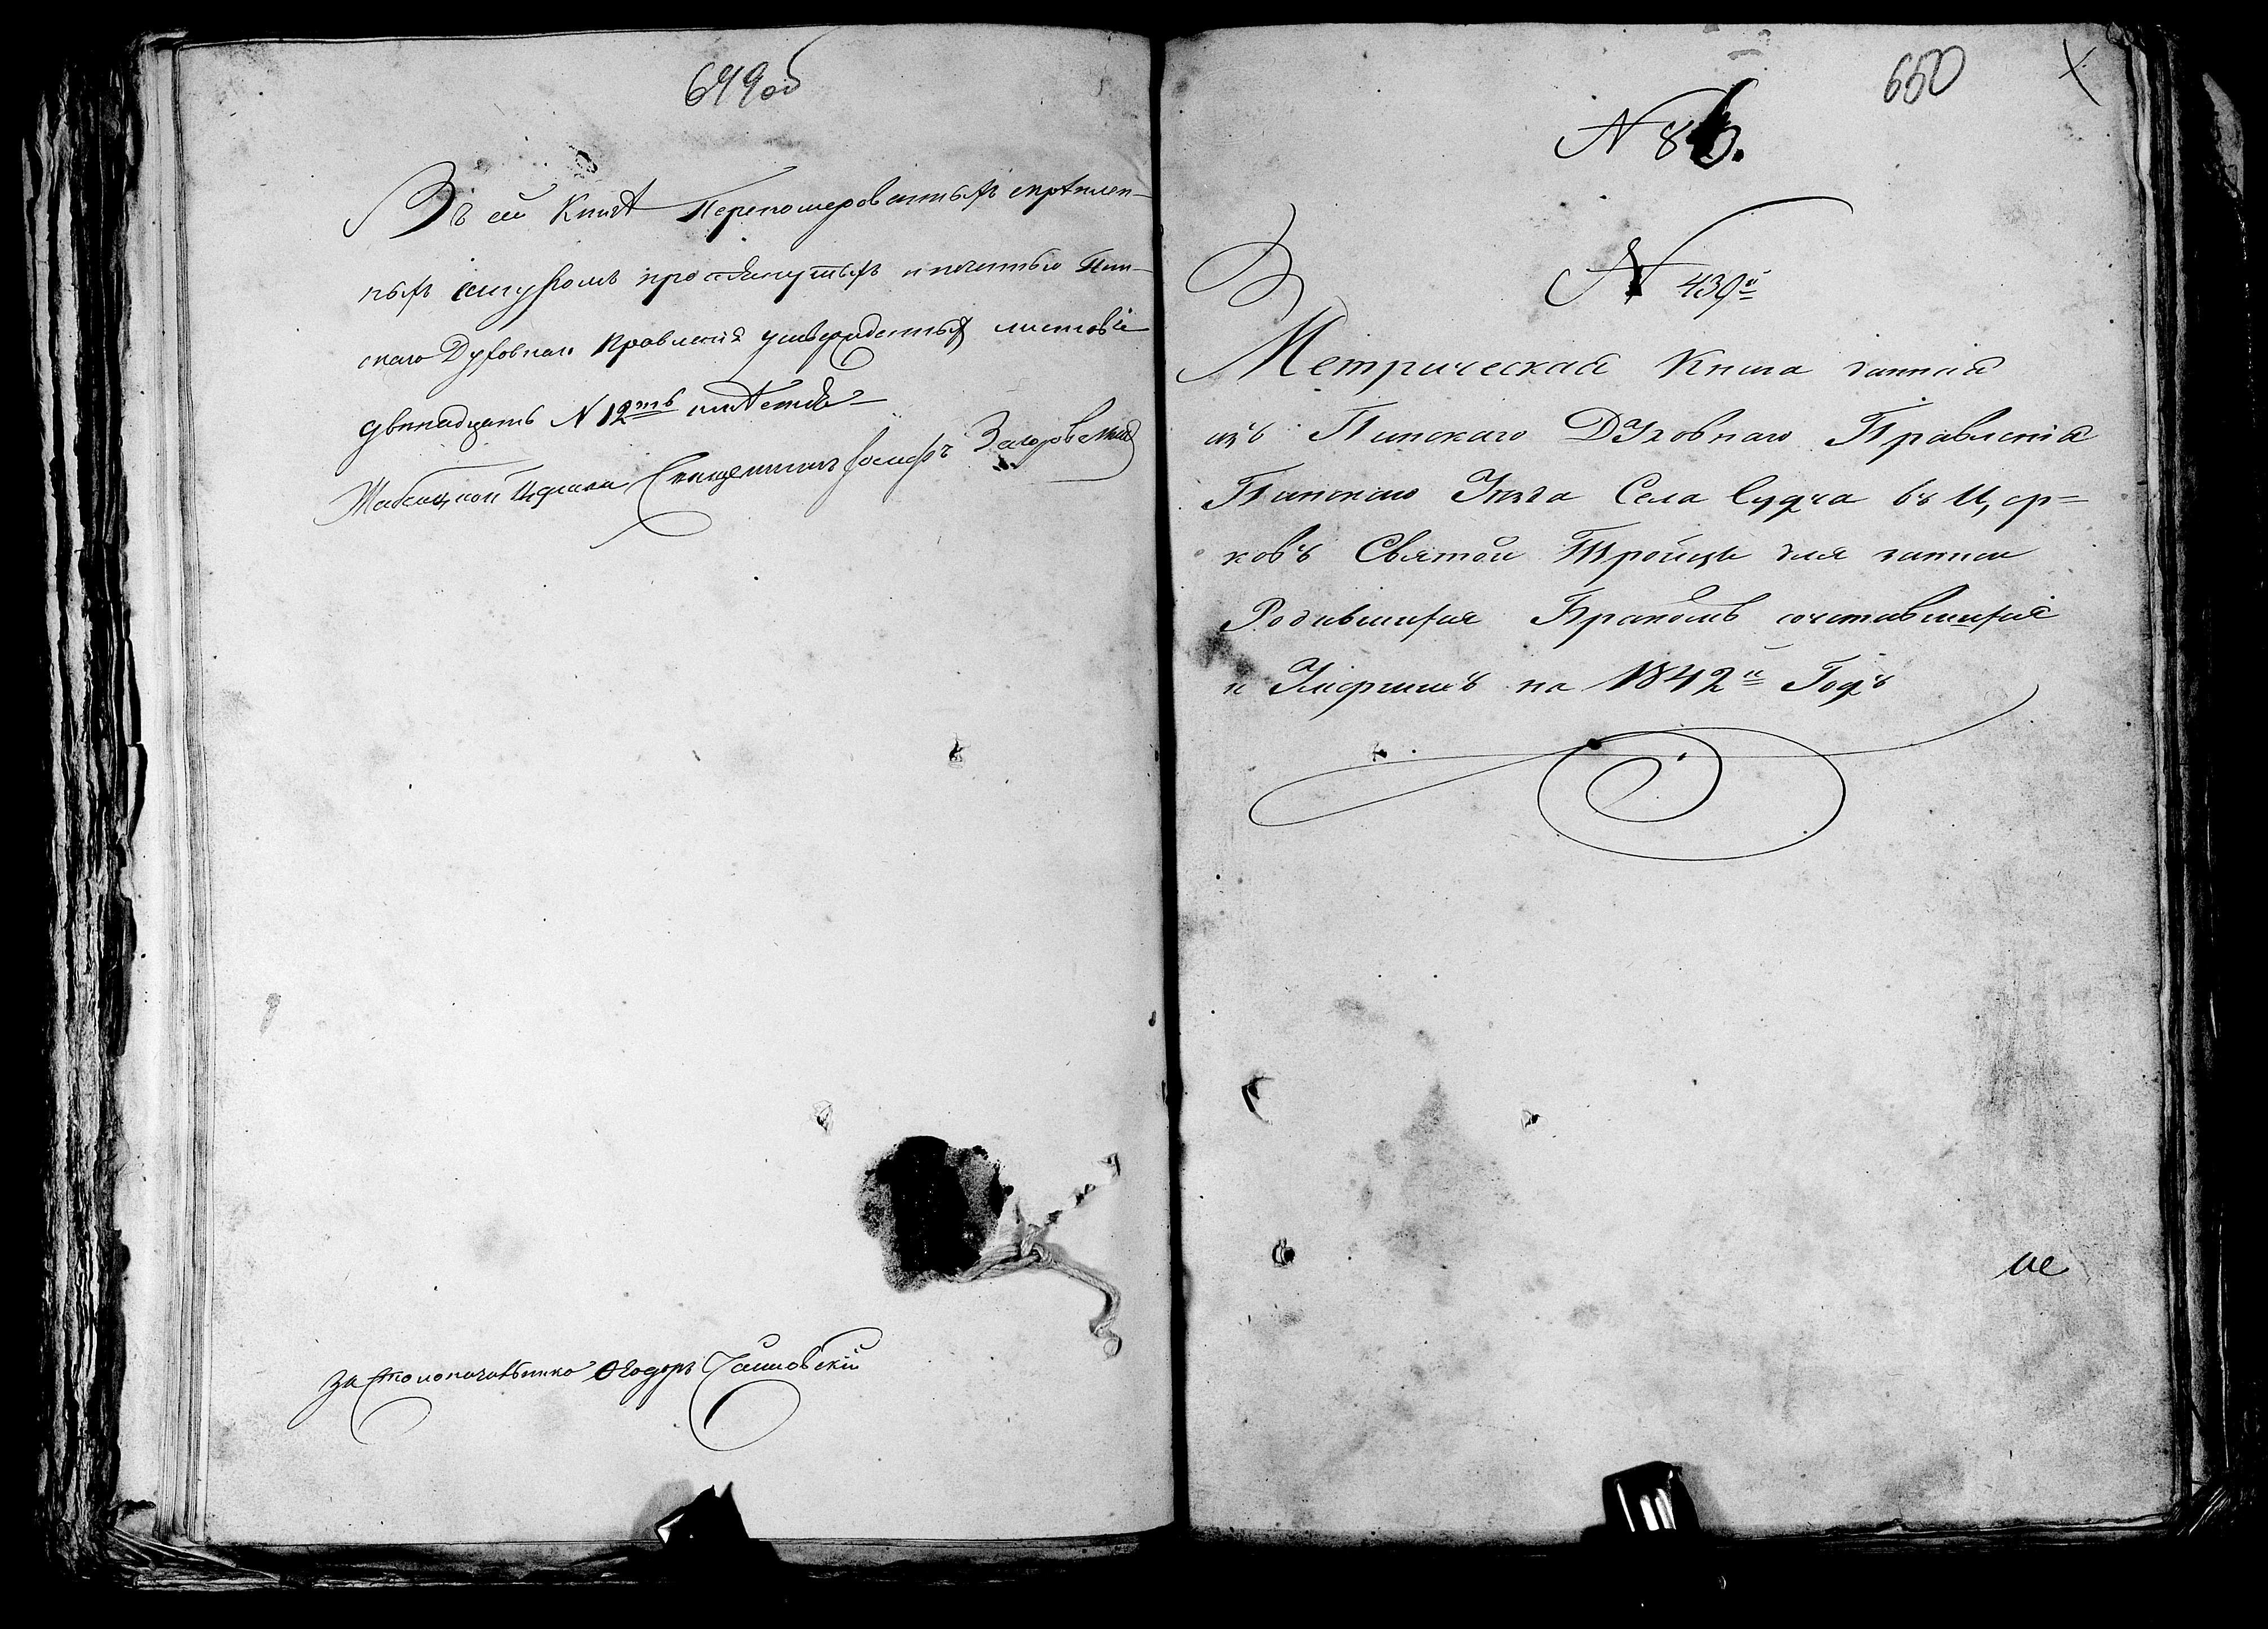 649об
Въ сей Книгѣ Переномерованныхъ скрѣплен-
ныхъ шнуромъ простянутыхъ и печатью Пин-
скаго Духовнаго Правленія утвержденныхъ листовъ
двенадцать N 12ть
Священникъ Іосифъ Загоровскій
за Столоначальника Ѳеодоръ
650
N 86.
N 439й
Метрическая Книга данная
изъ Пинскаго Духовнаго Правленія
Пинскаго Уѣзда Села Судча въ Цер=
ковь Святой Тройцы для записи
Родившихся Бракомъ сочетавшихся
и Умершихъ на 1842й Годъ